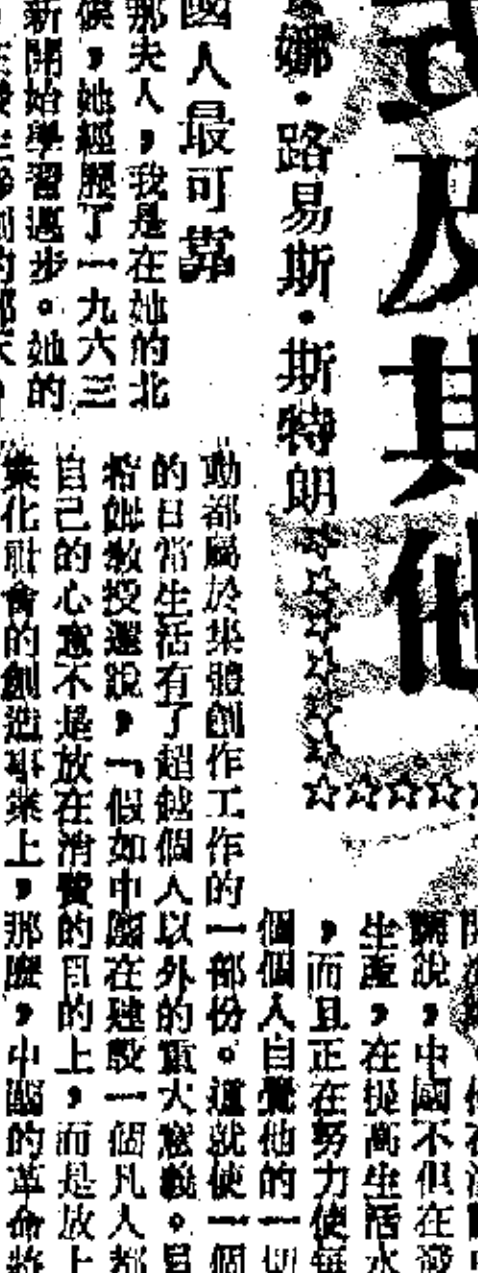 式及其他
娜·路易斯·斯特朗
☆☆☆☆
國人最可靠
那夫人，我是在她的北
候，她經歷了一九六三
新開始學習進步。她的
開說，中國不但在發
生產，在提高生活水
，而且正在努力使每
個個人自覺他的一切
動都屬於集體創作工作的一部份。這就使一個
的日常生活有了超越個人以外的重大意義。
教授還說，「假如中國在建設一個凡人都
自己的心意不是放在消費的目的上，而是放上
集化社會的創造事業上，那麼，中國的革命將